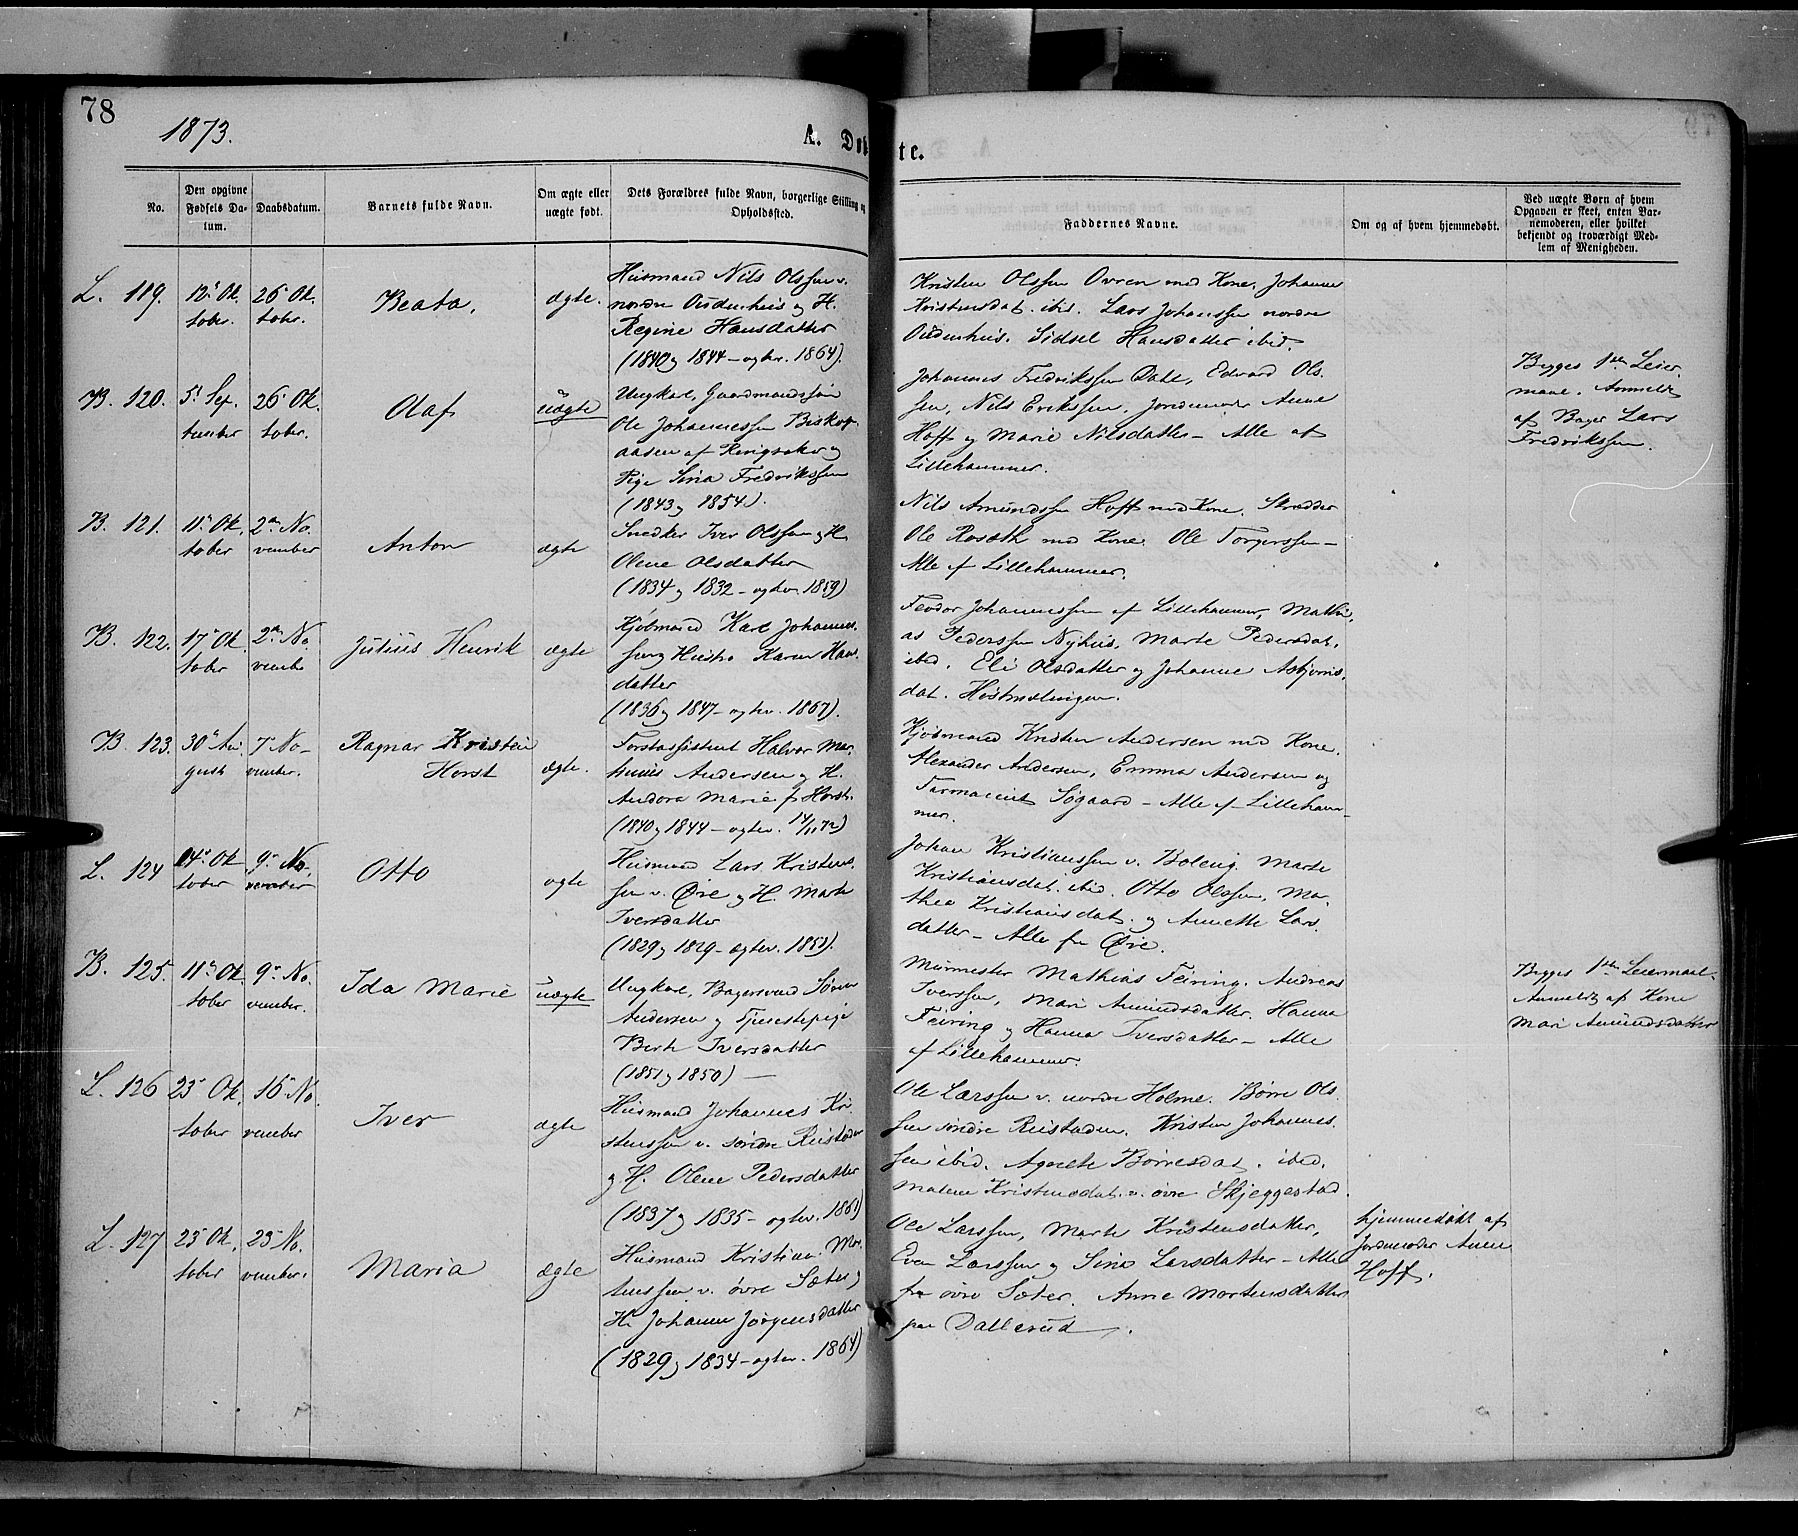 78
1873.
A. Døb
te.
No.
Den opgivne
Fødsels Da-
tum.
Daabsdatum.
Barnets fulde Navn.
Om ægte eller
uægte født.
Dets Forældres fulde Navn, borgerlige Stilling og
Opholdssted.
Faddernes Navne.
Om og af hvem hjemmedøbt.
Ved uægte Børn af hvem
Opgaven er skeet, enten Bar-
nemoderen, eller hvilket
bekjendt og troværdigt Med-
lem af Menigheden.
L. 119.
12' Ok.
tober.
26' Ok.
tober.
Beata.
ægte.
Husmand Nils Olssen v.
nordre Oudenhus og H.
Regine Hansdatter
(1840 og 1844 - egtev. 1864).
Kristen Olssen Ovren med Kone. Johanne
Kristensdat. ibid. Lars Johanssen nordre
Oudenhus. Sidsel Hansdatter ibid.
B. 120.
5' Sep.
tember
26' Ok.
tober.
Olaf
uægte
Ungkarl, Gaardmandssøn
Ole Johannessen Biskop-
aasen af Ringsaker og
Pige Sina Fredrikssen
(1843 og 1854).
Johannes Fredrikssen Dahl, Edvard Ols-
sen, Nils Erikssen, Jordemoder Anne
Hoff og Marie Nilsdatter - Alle af
Lillehammer.
Begges 1ste Leier-
maal. Anmeldt
af Bager Lars
Fredrikssen.
B. 121.
11' Ok.
tober
2den No.
vember
Anton
ægte
Snedker Iver Olssen og H.
Olene Olsdatter
(1834 og 1832 - egtev. 1859)
Nils Amundssen Hoff med Kone. Skrædder
Ole Roseth med Kone. Ole Torgerssen -
Alle af Lillehammer.
B. 122.
17' Ok.
tober
2den No
vember
Julius Henrik
ægte
Kjøbmand Karl Johannes-
sen og Hustro Karen Hans-
datter
(1836 og 1847 - egtev. 1867).
Feodor Johannessen af Lillehammer, Mathi-
as Pederssen Nyhus, Marte Pedersdat.
ibid. Eli Olsdatter og Johanne Asbjørns-
dat.
B. 123.
30' Au-
gust
7' No-
vember.
Ragnar Kristen
Horst
ægte.
Forstassistent Halvor Mar-
thinius Andersen og H.
Andora Marie f. Horst.
(1840 og 1844 - egtev. 14/11 72)
Kjøbmand Kristen Andersen med Kone.
Alexander Andersen, Emma Andersen og
Farmaceut Søgaard - Alle af Lilleham-
mer.
L. 124
14' Ok
tober
9' No.
vember
Otto
ægte
Husmand Lars Kristens-
sen v. Øvre og H. Marte
Iversdatter
(1829 og 1829 - egtev. 1853).
Johan Kristianssen v. Boleng. Marte
Kristiansdat. ibid. Otto Olssen, Ma-
thea Kristiansdat. og Annette Lars-
datter - Alle fra Øvre.
B. 125.
11' Ok.
tober
9' No.
vember.
Ida Marie
uægte
Ungkarl, Bagersvend Søren
Andersen og Tjenestepige
Berte Iversdatter
(1851 og 1850) -
Murmester Mathias Feiring. Andreas
Iverssen, Mari Amundsdatter. Hanna
Feiring og Hanna Iversdatter - Alle
af Lillehammer.
Begges 1ste Leiermaal.
Anmeldt af Kone
Mari Amundsdatter
L. 126
25' Ok.
tober
16' No.
vember
Iver
ægte
Husmand Johannes Kri-
stenssen v. søndre Reistaden
og H. Olene Pedersdatter
(1837 og 1835 - egtev. 1861)
Ole Larssen v. nordre Holme. Børre Ols-
sen søndre Reistaden. Kristen Johannes-
sen ibid. Agnete Børresdat. ibid.
Malene Kristensdat. v. øvre Skjeggestad.
L. 127
23' Ok.
tober
23' No.
vember.
Maria
ægte
Husmand Kristian Mor-
tenssen v. øvre Sæter og
H. Johanne Jørgensdatter
(1829 og 1834 - egtev. 1864)
Ole Larssen, Marte Kristensdatter,
Even Larssen og Sina Larsdatter - Alle
fra øvre Sæter. Anne Mortensdatter
paa Dallerud.
hjemmedøbt af
Jordmoder Anne
Hoff.